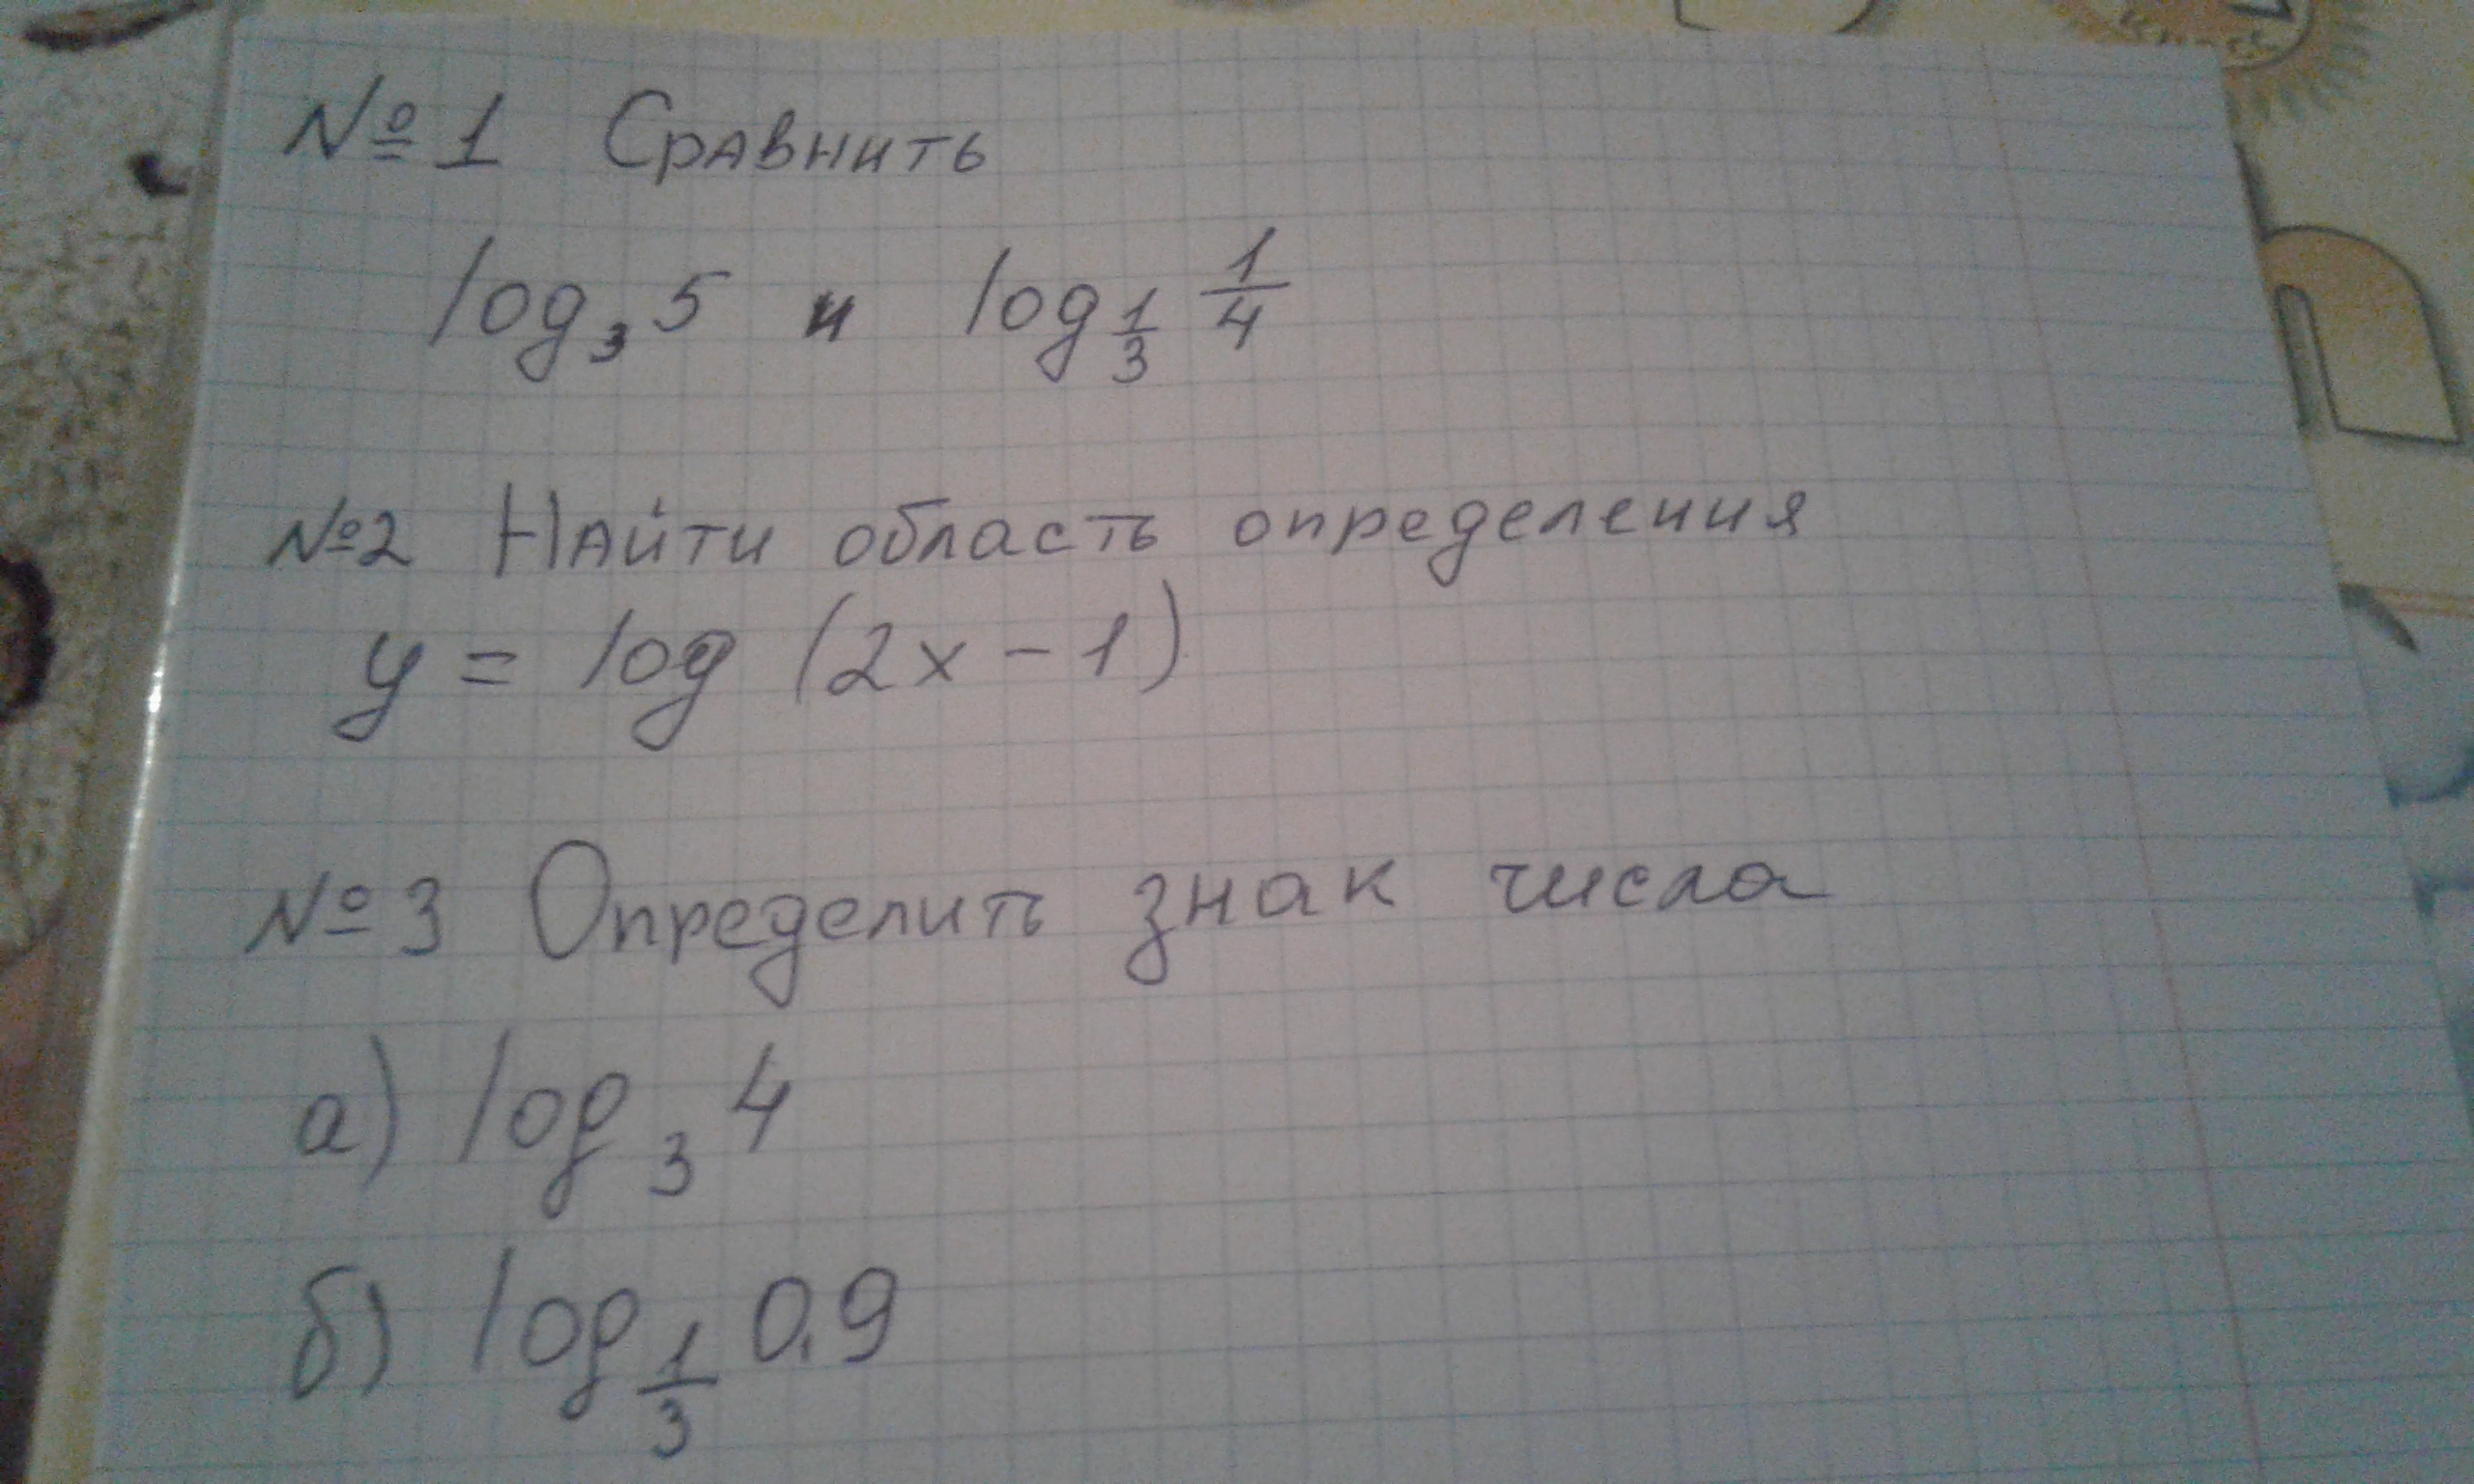 №1 Сравнить
log₃ 5 и log_{1/3} 1/4
№2 Найти область определения
y = log (2x - 1)
№3 Определить знак числа
а) log₃ 4
б) log_{1/3} 0,9